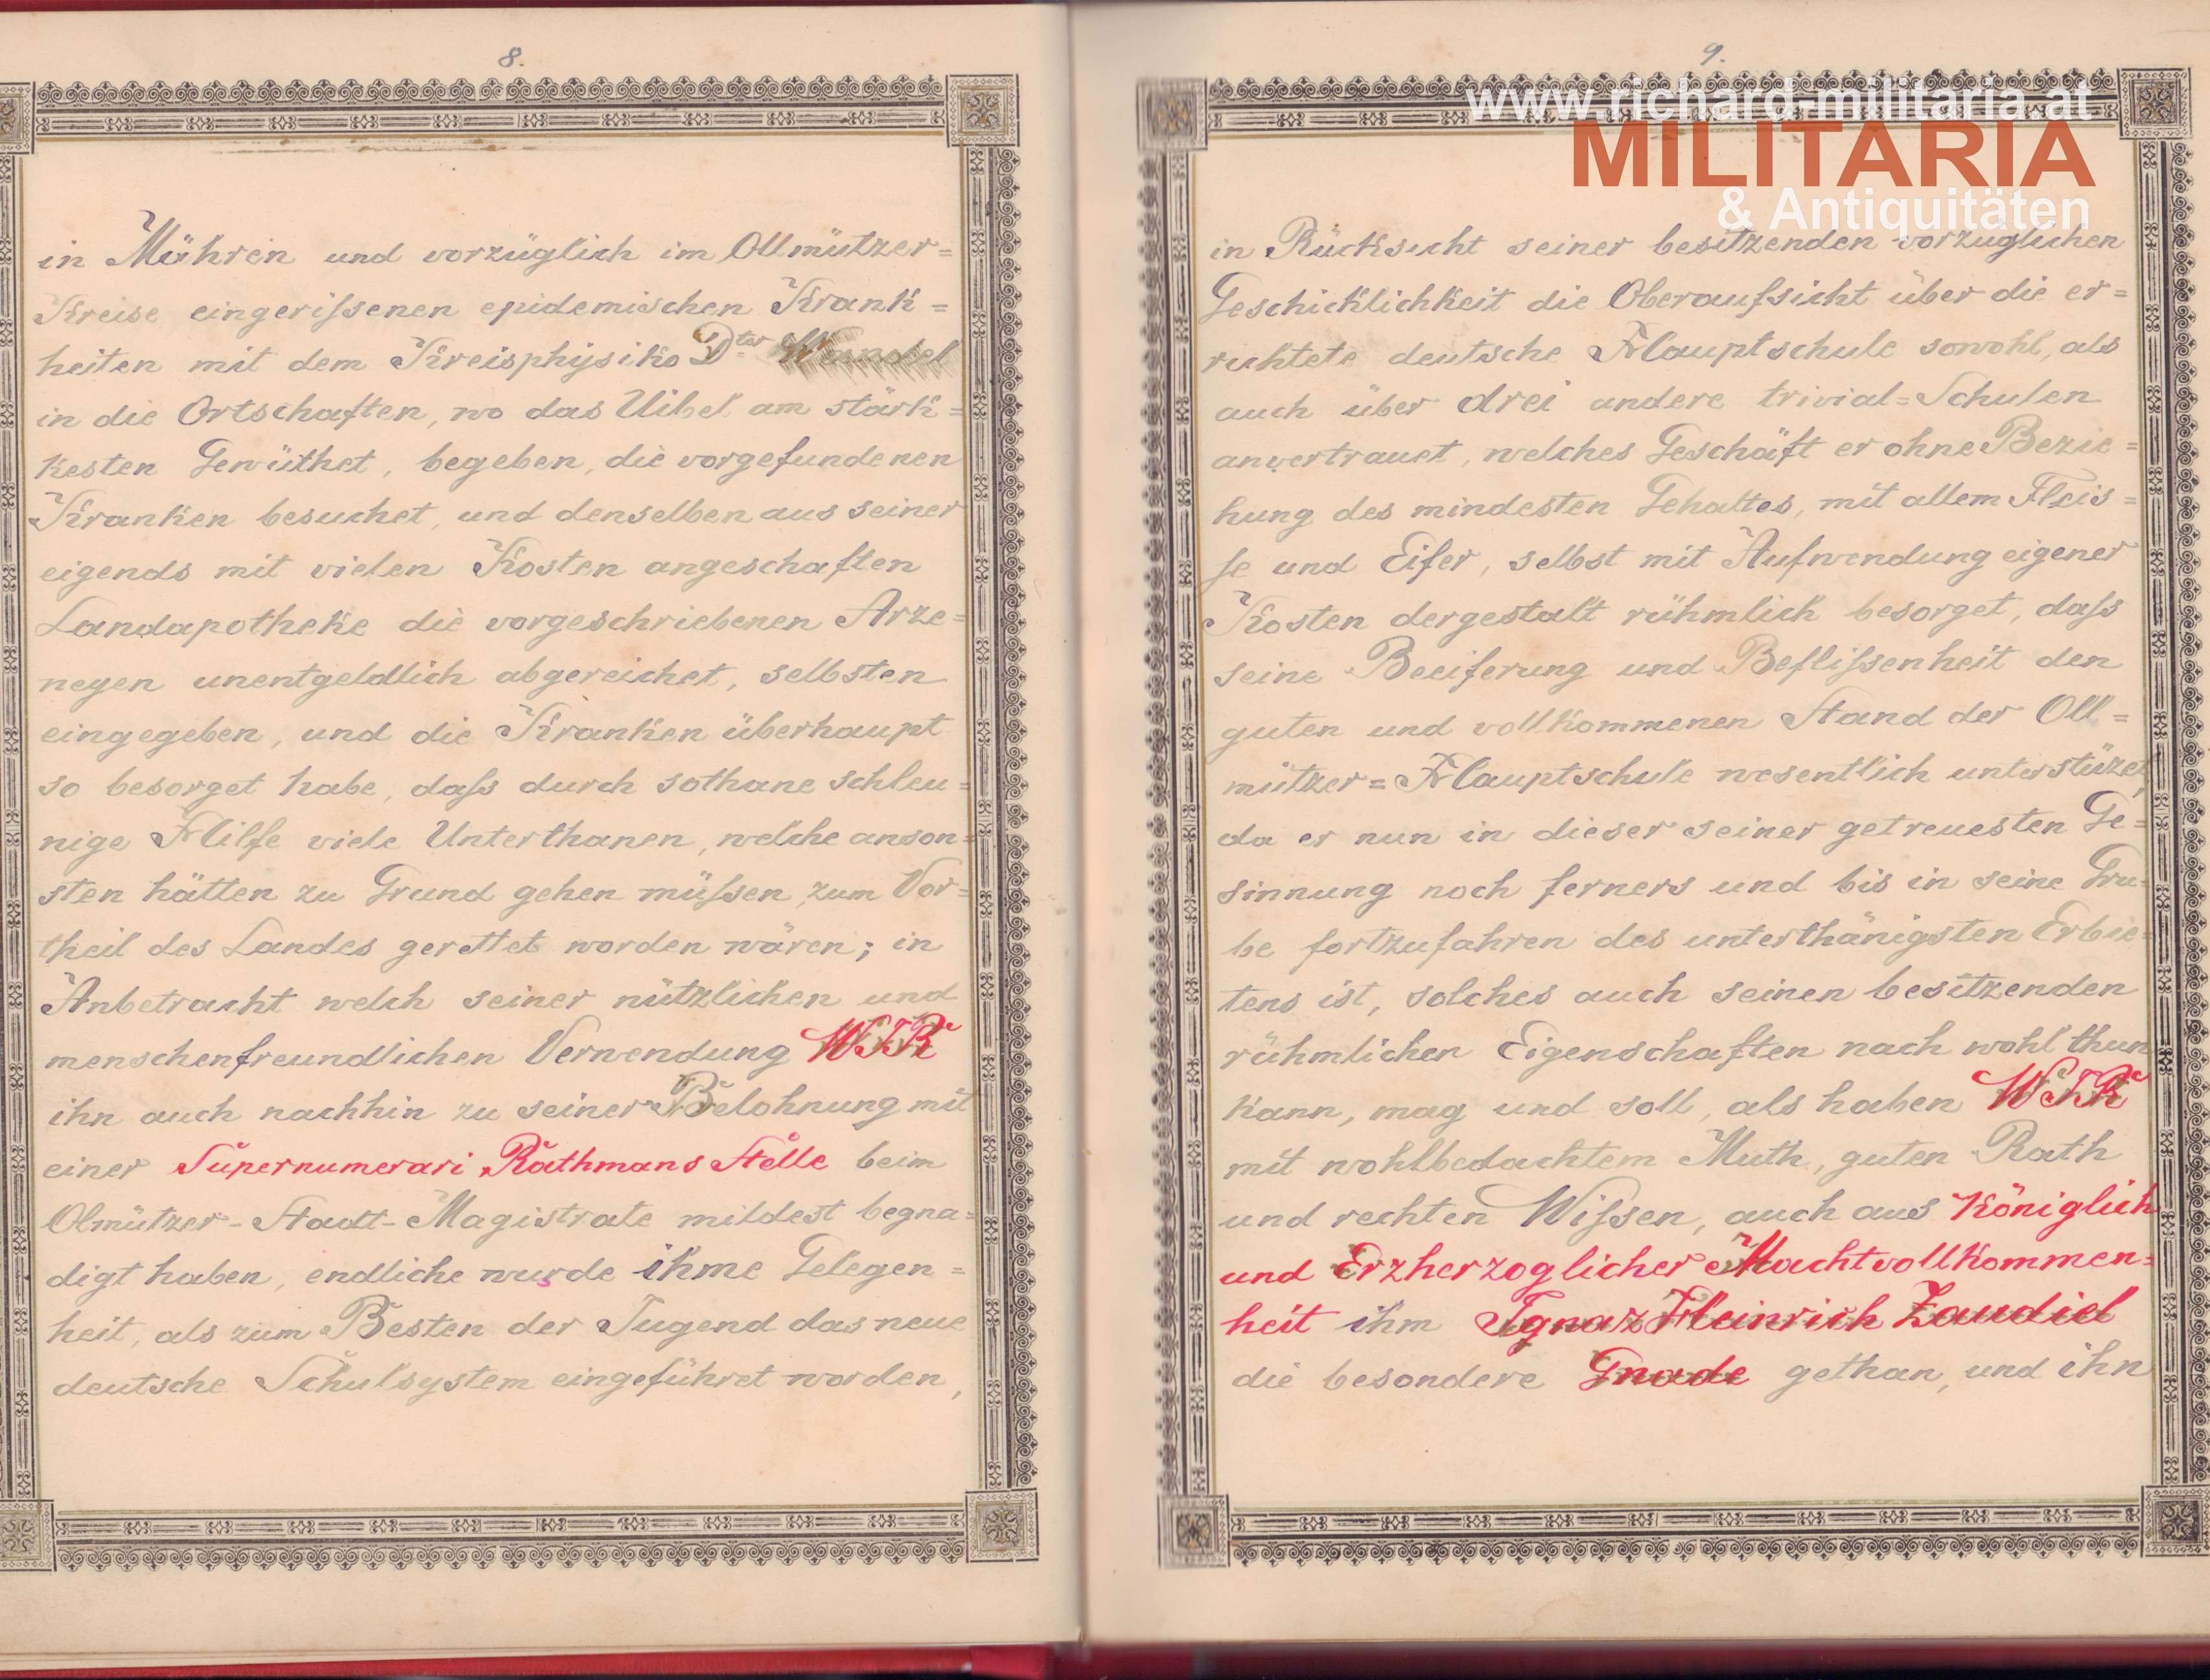 8.
in Mähren und vorzüglich im Ollmützer=
Kreise eingerißenen epidemischen Krank=
heiten mit dem Kreisphÿsiko Dter
in die Ortschaften, wo das Uibel am stärk=
kesten Gewüthet, begeben, die vorgefundenen
Kranken besuchet, und denselben aus seiner
eigends mit vielen Kosten angeschaften
Landapotheke die vorgeschriebenen Arze=
neyen unentgeldlich abgereichet, selbsten
eingegeben, und die Kranken überhaupt
so besorget habe, daß durch sothane schleu=
nige Hilfe viele Unterthanen, welche anson=
sten hätten zu Grund gehen müßen, zum Vor=
theil des Landes gerettet worden wären; in
Anbetracht welch seiner nützlichen und
menschenfreundlichen Verwendung WIR
ihn auch nachhin zu seiner Belohnung mit
einer Supernumerari Rathmans Stelle beim
Olmützer-Stadt-Magistrate mildest begna=
digt haben, endliche wurde ihme Gelegen=
heit, als zum Besten der Jugend das neue
deutsche Schulsystem eingeführet worden,
9.
www.richard-militaria.at
MILITARIA
& Antiquitäten
in Rücksicht seiner besitzenden vorzüglichen
Geschicklichkeit die Oberaufsicht über die er=
richtete deutsche Hauptschule sowohl, als
auch über drei andere trivial=Schulen
anvertrauet, welches Geschäft er ohne Bezie=
hung des mindesten Gehaltes, mit allem Fleis=
se und Eifer, selbst mit Aufwendung eigener
Kosten dergestalt rühmlich besorget, daß
seine Beeiferung und Beflißenheit den
guten und vollkommenen Stand der Oll=
mützer=Hauptschule wesentlich unterstüzet,
da er nun in dieser seiner getreuesten Ge=
sinnung noch ferners und bis in seine Gru=
be fortzufahren des unterthänigsten Erbie=
tens ist, solches auch seinen besitzenden
rühmlichen Eigenschaften nach wohl thun
kann, mag und soll, als haben WIR
mit wohlbedachtem Muth, guten Rath
und rechten Wißen, auch aus Königlich
und Erzherzoglicher Machtvollkommen=
heit ihm Ignaz Heinrich Zaudiel
die besondere Gnade gethan, und ihn